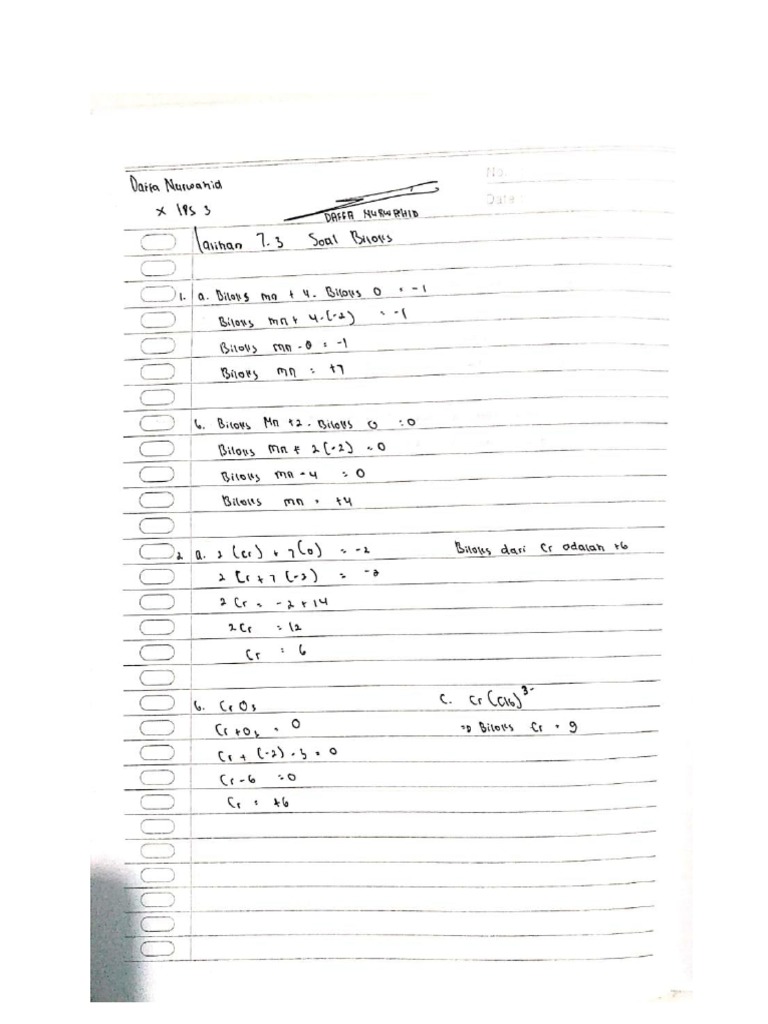 Daffa Nurwahid
X IPS 3
DAFFA NURWAHID
No.
Date
Latihan 7.3 Soal Biloks
1. a. Biloks mn + 4. Biloks O = -1
Biloks mn + 4.(-2) = -1
Biloks mn - 8 = -1
Biloks mn = +7
b. Biloks Mn +2. Biloks O = 0
Biloks mn + 2(-2) = 0
Biloks mn - 4 = 0
Biloks mn = +4
2 a. 2 (Cr) + 7(O) = -2
Biloks dari Cr adalah +6
2 Cr + 7 (-2) = -2
2 Cr = -2 + 14
2 Cr = 12
Cr = 6
b. CrO3
Cr + O3 = 0
Cr + (-2) . 3 = 0
Cr - 6 = 0
Cr = +6
C. Cr(Cl6)3-
⇒ Biloks Cr = 9